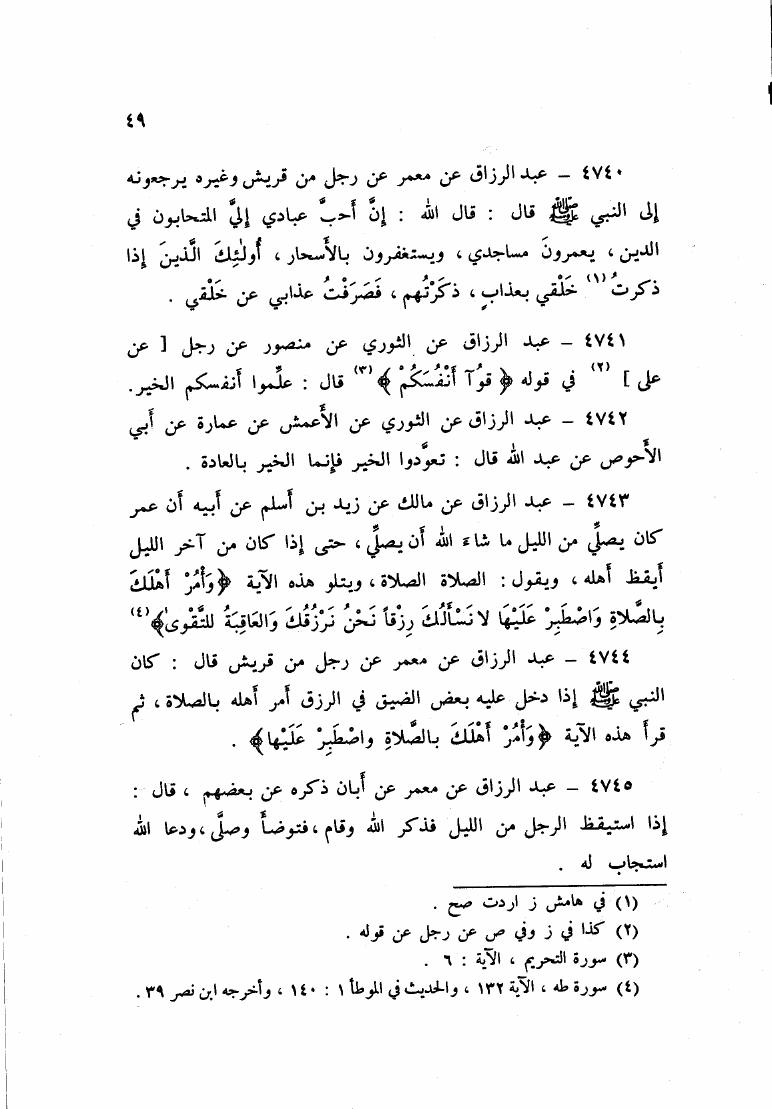 ٤٩
٤٧٤٠ – عبد الرزاق عن معمر عن رجل من قريش وغيره يرجعونه
إلى النبي ﷺ قال : قال الله : إنَّ أحبَّ عبادي إليَّ المتحابون في
الدين ، يعمرونَ مساجدي ، ويستغفرون بالأَسحار ، أُولٰئِكَ الَّذينَ إذا
ذكرتُ (١) خَلْقي بعذابٍ ، ذكَرْتُهم ، فَصَرَفْتُ عذابي عن خَلْقي .
٤٧٤١ – عبد الرزاق عن الثوري عن منصور عن رجل [ عن
على ] (٢) في قوله ﴿ قُوٓا أَنْفُسَكُمْ ﴾ (٣) قال : علِّموا أَنفسكم الخير.
٤٧٤٢ – عبد الرزاق عن الثوري عن الأَعمش عن عمارة عن أَبي
الأَحوص عن عبد الله قال : تعوَّدوا الخير فإنما الخير بالعادة .
٤٧٤٣ – عبد الرزاق عن مالك عن زيد بن أَسلم عن أَبيه أن عمر
كان يصلِّي من الليل ما شاءَ الله أن يصلِّي ، حتى إذا كان من آخر الليل
أَيقظ أهله ، ويقول : الصلاة الصلاة ، ويتلو هذه الآية ﴿وَأْمُرْ أَهْلَكَ
بِالصَّلاةِ وَاصْطَبِرْ عَلَيْهَا لا نَسْأَلُكَ رِزْقاً نَحْنُ نَرْزُقُكَ وَالعَاقِبَةُ للتَّقْوىٰ﴾(٤)
٤٧٤٤ – عبد الرزاق عن معمر عن رجل من قريش قال : كان
النبي ﷺ إذا دخل عليه بعض الضيق في الرزق أَمر أَهله بالصلاة ، ثم
قرأَ هذه الآية ﴿وَأْمُرْ أَهْلَكَ بالصَّلاةِ واصْطَبِرْ عَلَيْها﴾ .
٤٧٤٥ – عبد الرزاق عن معمر عن أَبان ذكره عن بعضهم ، قال :
إذا استيقظ الرجل من الليل فذكر الله وقام ، فتوضأَ وصلَّى ، ودعا الله
استجاب له .
(١) في هامش ز اردت صح .
(٢) كذا في ز وفي ص عن رجل عن قوله .
(٣) سورة التحريم ، الآية : ٦ .
(٤) سورة طه ، الآية ١٣٢ ، والحديث في الموطأ ١ : ١٤٠ ، وأخرجه ابن نصر ٣٩ .